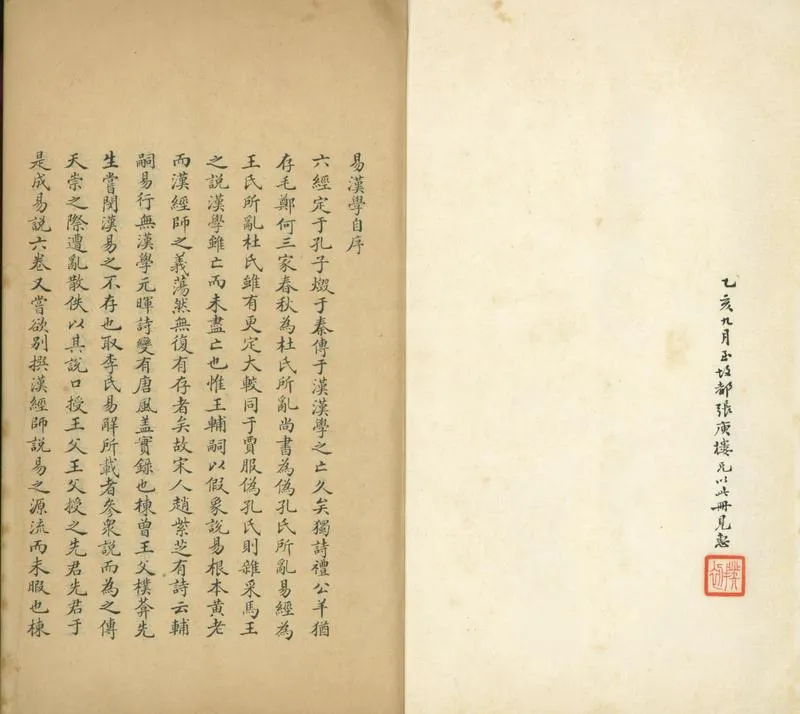 乙亥九月玉坡都張庾樓兄以此冊見惠
易漢學自序
六經定于孔子燬于秦傳于漢漢學之亡久矣獨詩禮公羊猶
存毛鄭何三家春秋為杜氏所亂尚書為偽孔氏所亂易經為
王氏所亂杜氏雖有更定大較同于賈服偽孔氏則雜采馬王
之說漢學雖亡而未盡亡也惟王輔嗣以假象說易根本黃老
而漢經師之義蕩然無復有存者矣故宋人趙紫芝有詩云輔
嗣易行無漢學元暉詩變有唐風盖實錄也棟曾王父樸菴先
生嘗閔漢易之不存也取李氏易解所載者參衆說而為之傳
天崇之際遭亂散佚以其說口授王父王父授之先君先君于
是成易說六卷又嘗欲別撰漢經師說易之源流而未暇也棟